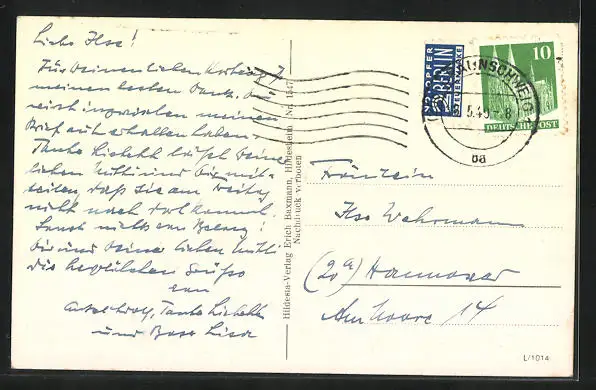 Liebe Ilse!
Für Deinen lieben
meinen besten Dank. Du
wirst inzwischen meinen
Brief auch erhalten haben.
Tante Liesbeth läßt Deine
lieben Mutti und Dir mit-
teilen, daß sie am
nicht nach dort kommt.
Sonst nichts von
Dir und Deiner lieben Mutti
die herzlichsten Grüße
von
Onkel Adolf, Tante Liesbeth
und Base Lisa
Hildesia-Verlag Erich Baxmann, Hildesheim Nr. 1547
Nachdruck verboten
NOTOPFER
2 BERLIN
STEUERMARKE
10
DEUTSCHE POST
BRAUNSCHWEIG
5.49.-8
Fräulein
Ilse Wehrmann
(20a) Hannover
Am Moore 14
L/1014